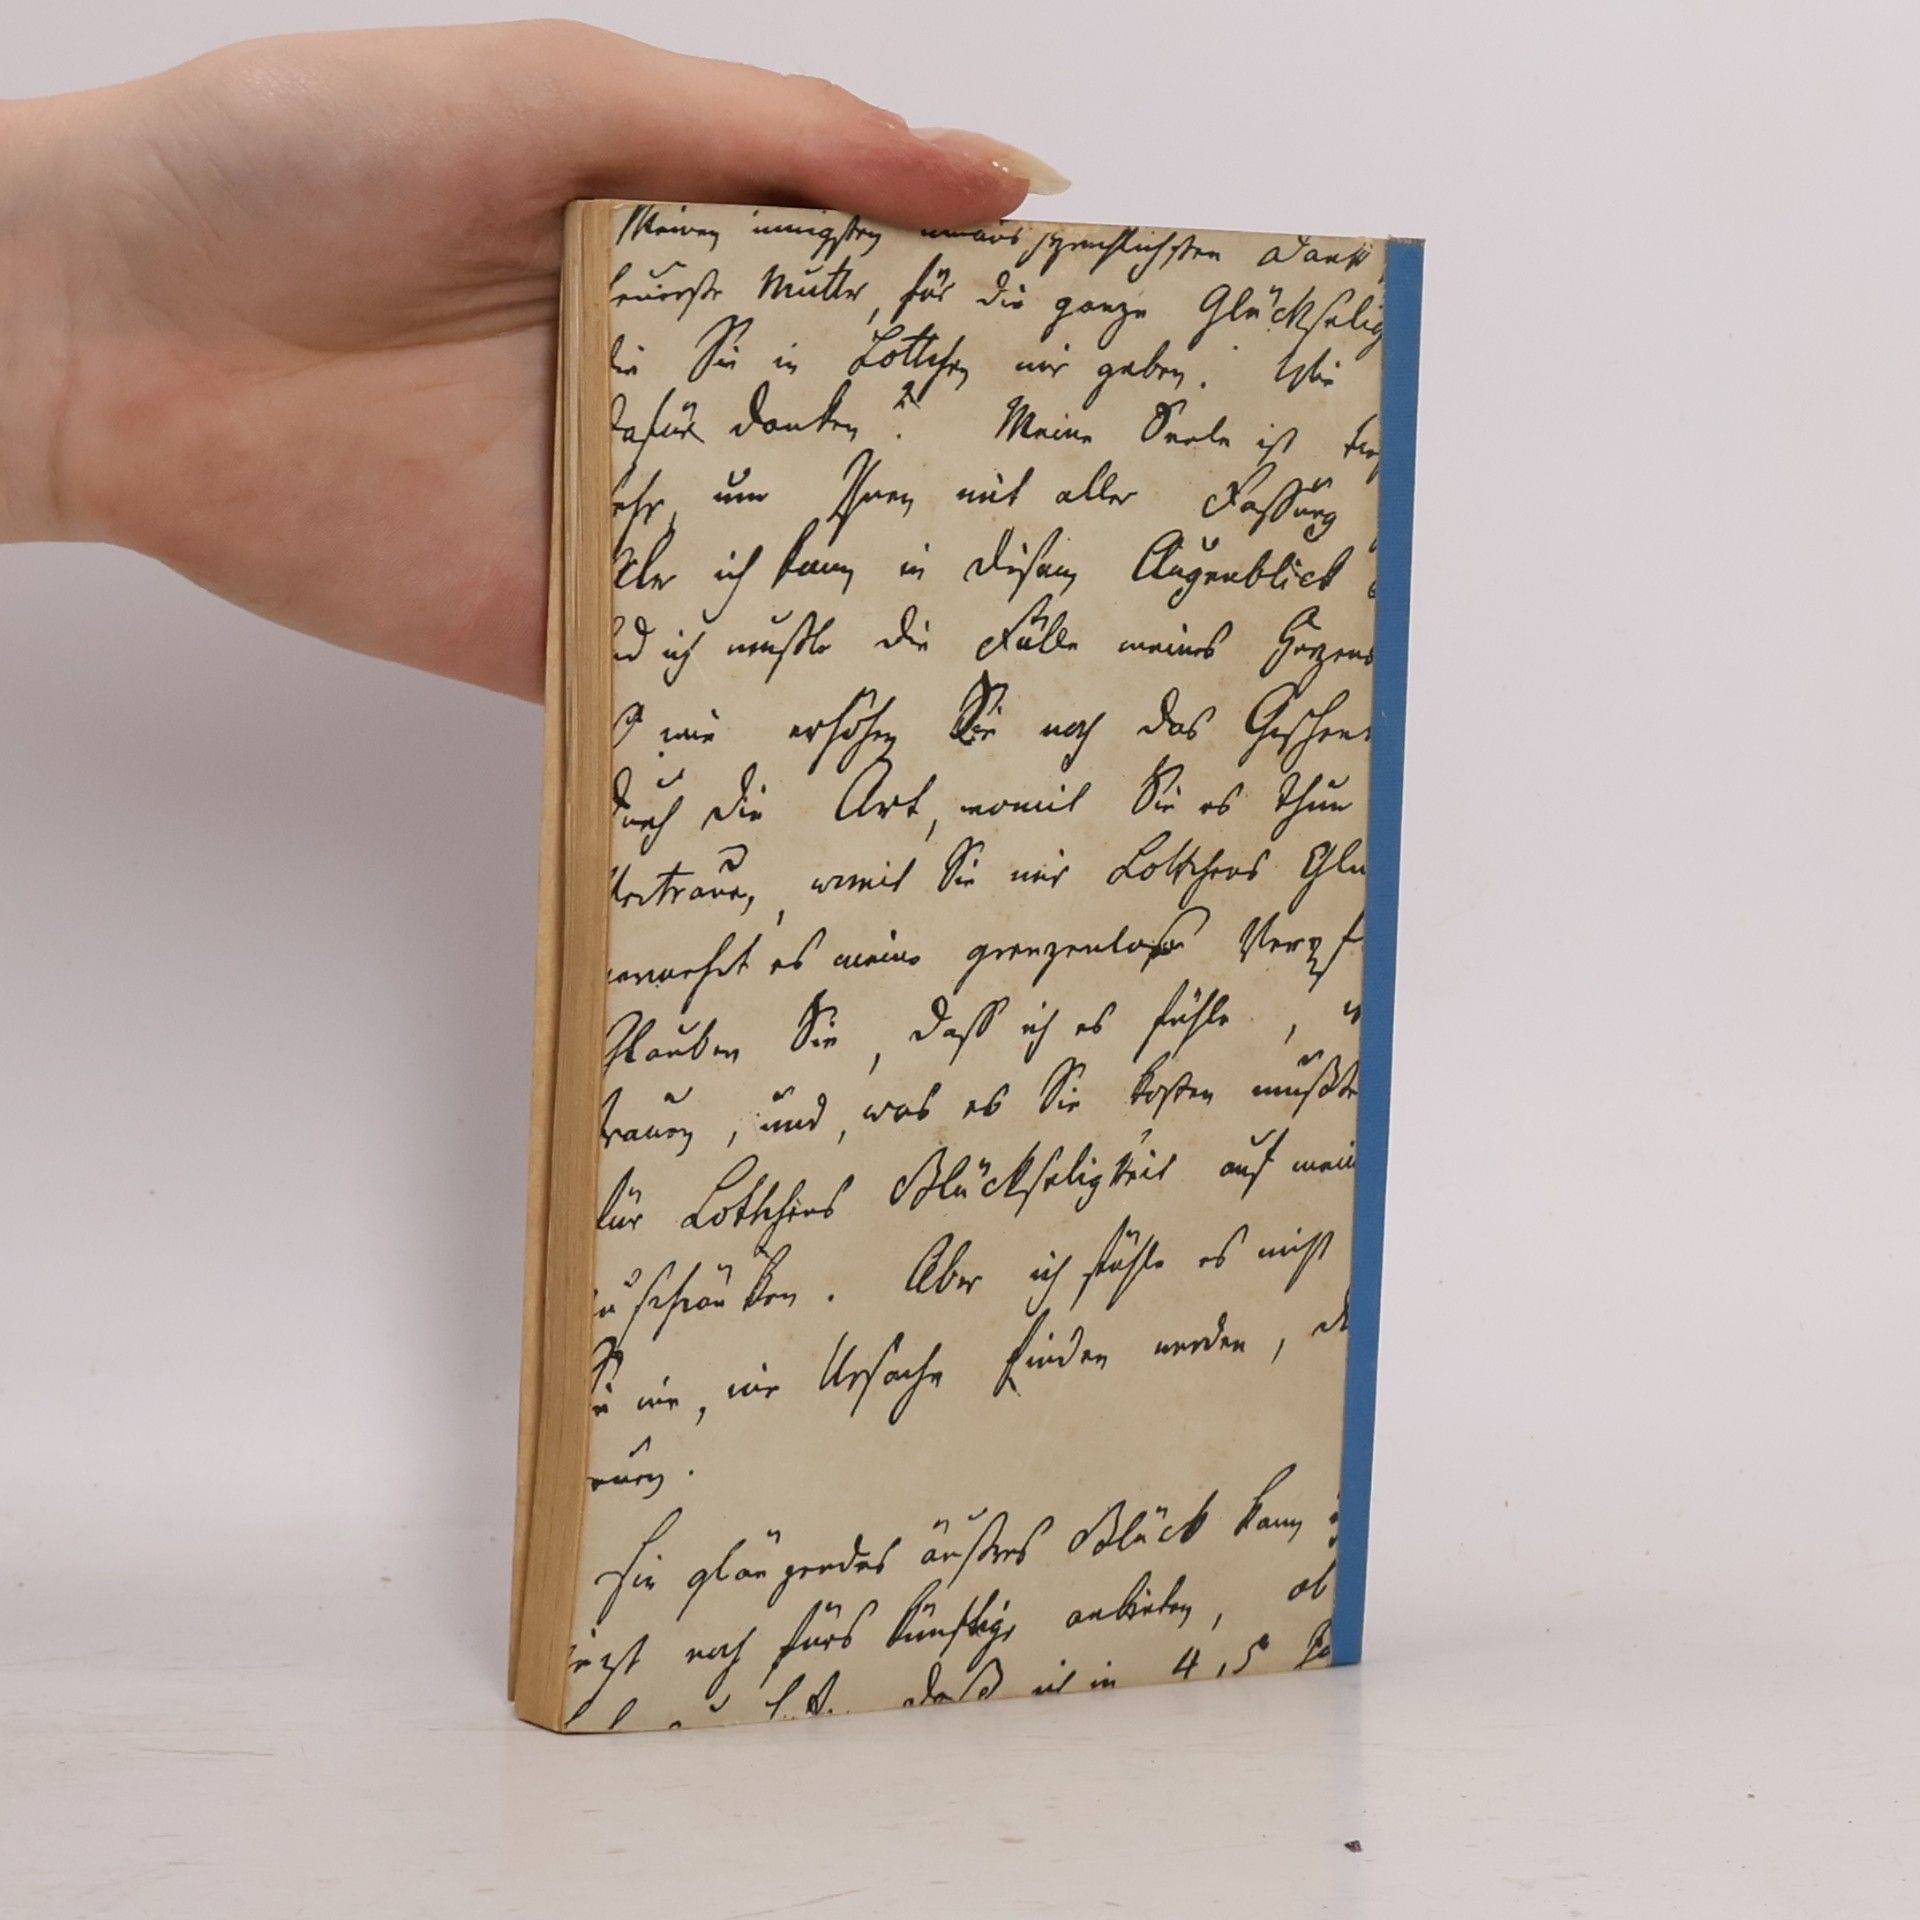 Meinen innigsten unaussprechlichsten Dank
teuerste Mutter, für die ganze Glückselig
die Sie in Lottchen mir geben. Wie
dafür danken? Meine Seele ist
sehr, um Ihnen mit aller Fassung
Aber ich kann in diesem Augenblick
ich mußte die Fülle meines Herzens
O wie erhöhen Sie noch das Geschenk
durch die Art, womit Sie es thun
Vertrauen, womit Sie mir Lottchens Glü
es meine grenzenlose Verpf
Glauben Sie, dass ich es fühle,
trauen, und, was es Sie kosten mußte
für Lottchens Glückseligkeit auf mein
zuschränken. Aber ich fühle es
Sie nie, nie Ursache finden werden, d
reuen.
Ein glänzendes äußres Glück kann
jezt noch fürs künftige anbieten, ob
daß ich in 4, 5